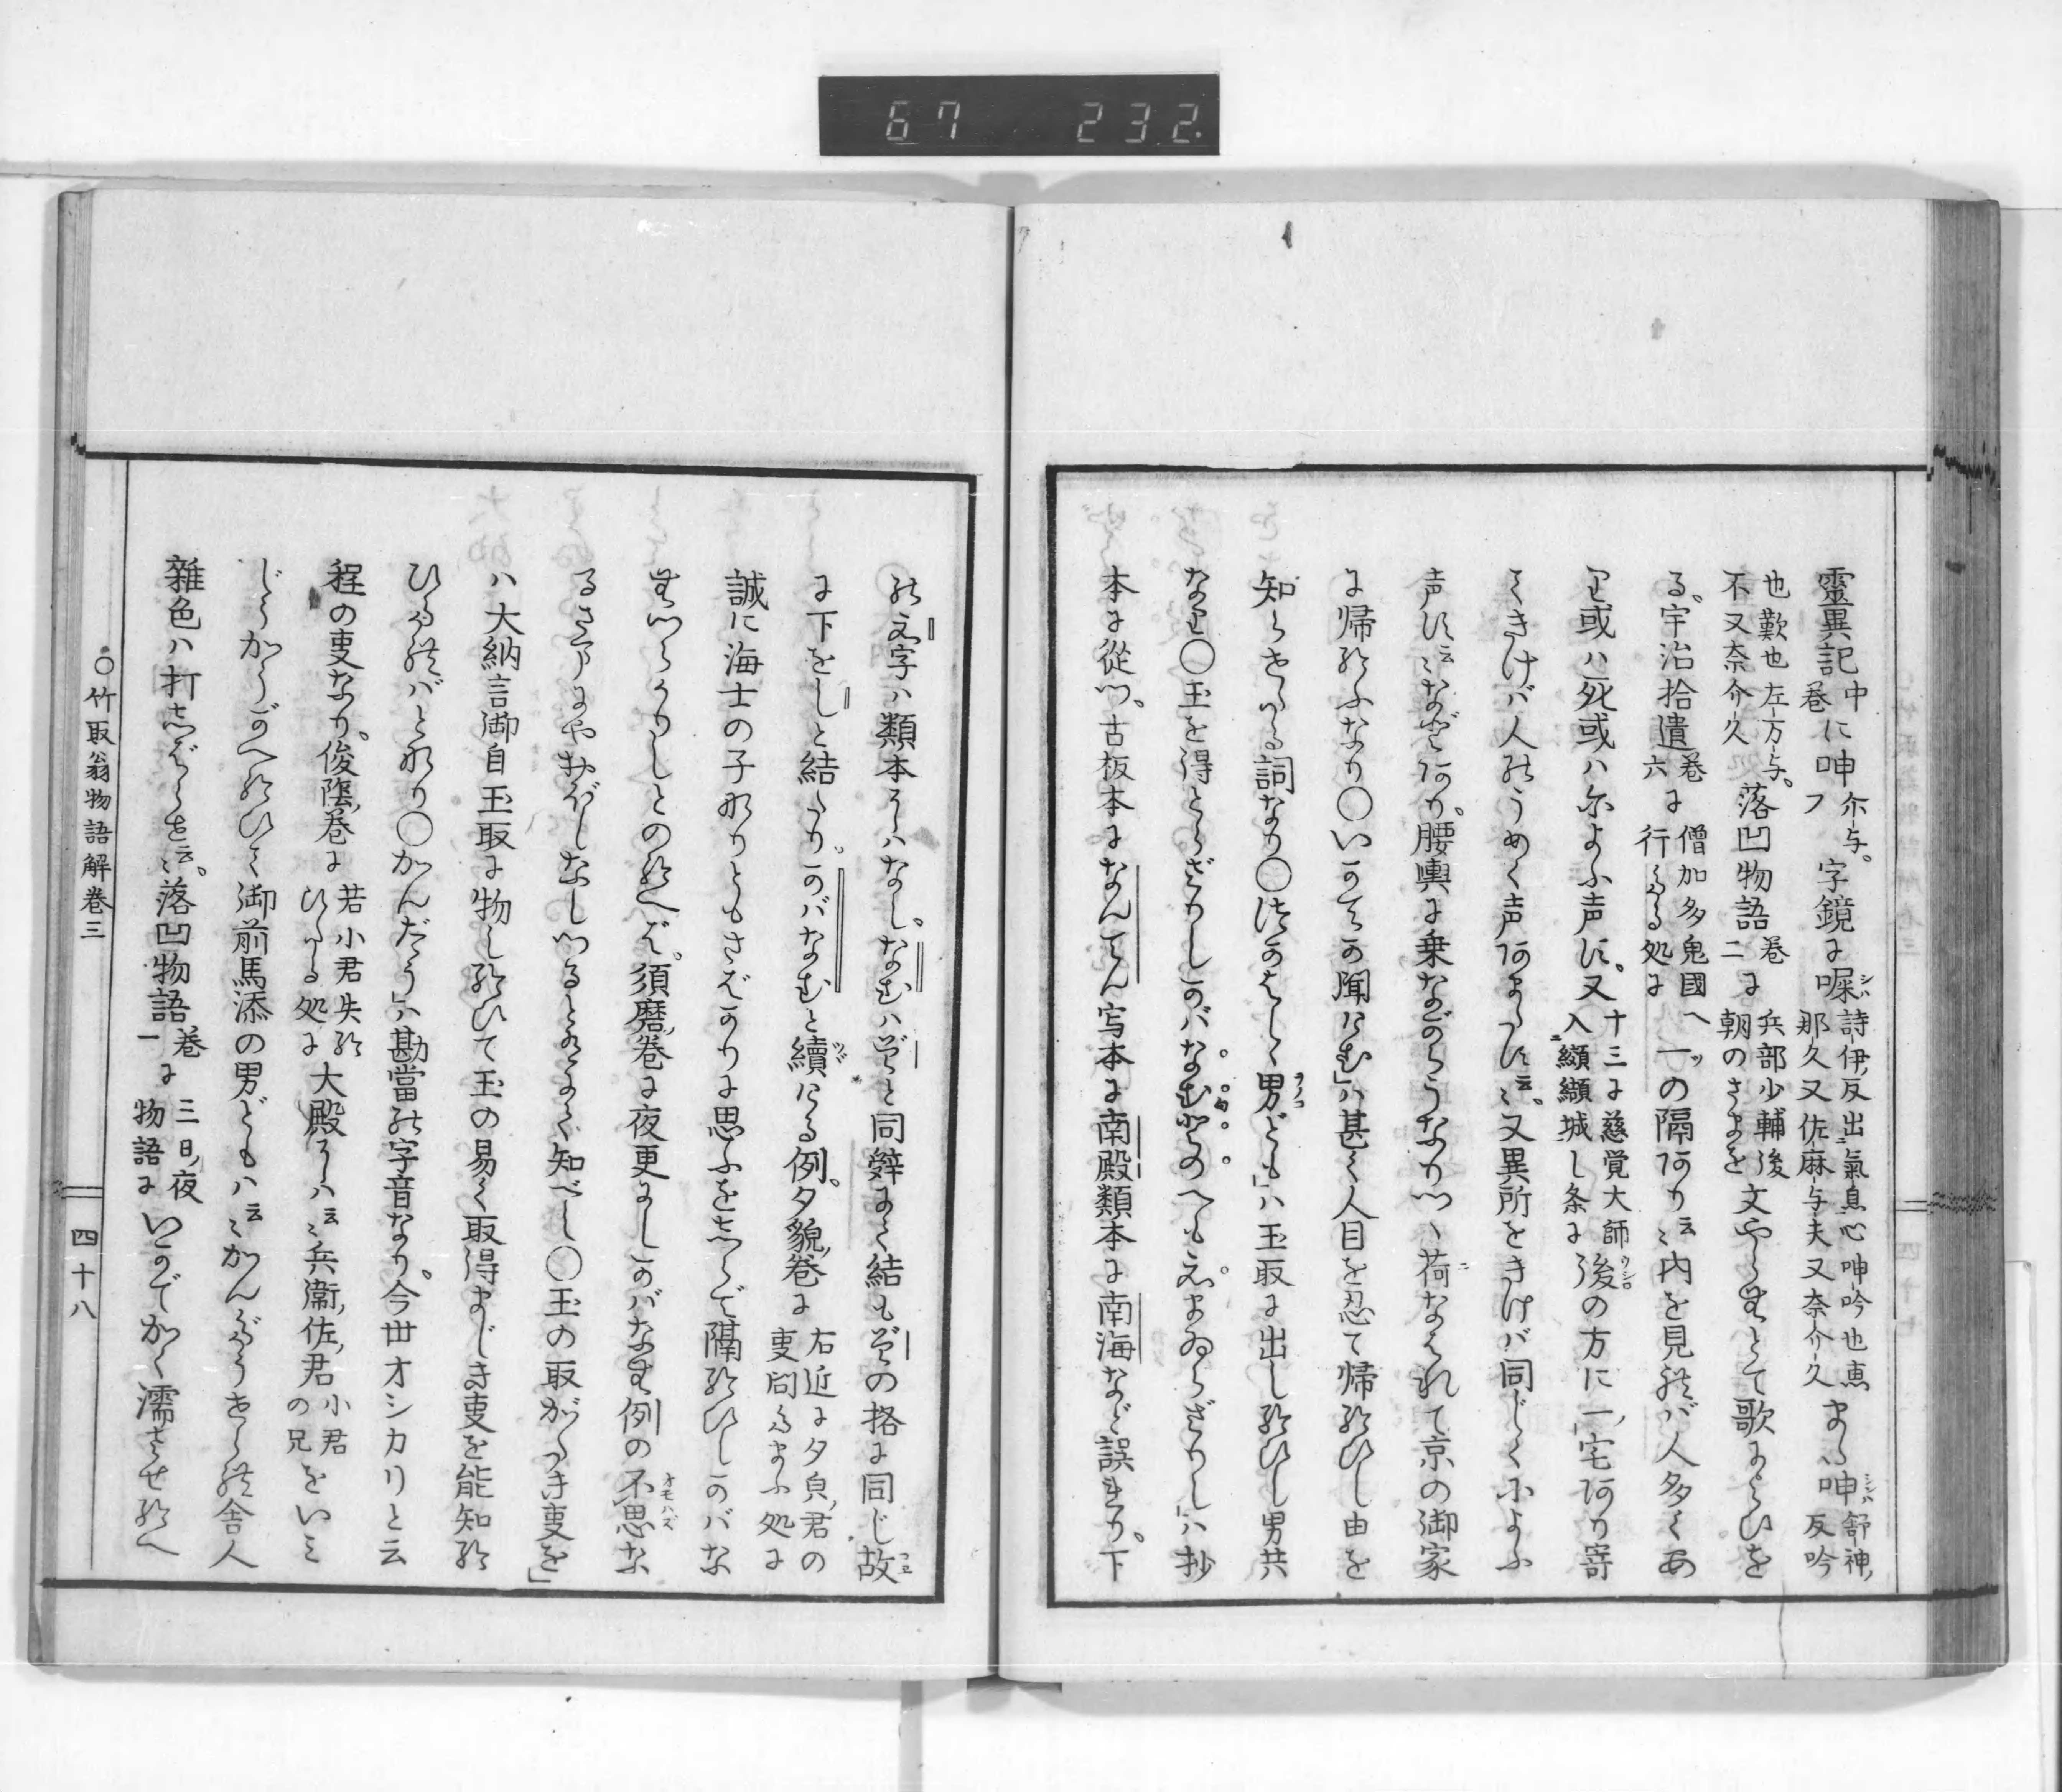 67 232.
靈異記中巻に呻尓与。フ字鏡に㖡詩伊反出氣息心呻吟也恵那久又佐麻与夫又奈介久また呻舒神反吟
也歎也左方与。不又奈介久落凹物語巻二に兵部少輔後朝のさまを文やらむとて歌によひを
る。宇治拾遺巻六に僧加多鬼國へ行たる処に一ツの隔あり云〻内を見れバ人多くあ
り或ハ死或ハ尓よふ声す。又十三に慈覚大師入纐纈城し条に後の方に一宅あり寄
てきけバ人のうめく声あまたす云〻。又異所をきけバ同じくによふ
声す云〻などあり。腰輿に乗ながらうなりつゝ荷なはれて京の御家
に帰給ふなり〇いかでか聞けむ」ハ甚く人目を忍て帰給ひし由を
知らせたる詞なり〇つかはしゝ男ども」ハ玉取に出し給ひし男共
なり〇玉を得とらざりしかバなむ殿へもえまゐらざりし」ハ抄
本に從つ。古板本になんてん写本に南殿類本に南海など誤まり。下
の文字ハ類本にハなし。なむハぞと同辞にて結もぞの格に同じ故
に下をしと結たり。かバなむと續ける例。夕貌巻に右近に夕皃君の事問たまふ処に
誠に海士の子なりともさばかりに思ふをしらで隔給ひしかバな
むつらかりしとの給へば。須磨巻に夜更にしかバなむ例の不思な
るさまにやおぼしなしつるとあるにて知べし〇玉の取がたき事を」
ハ大納言御自玉取に物し給ひて玉の易く取得まじき事を能知給
ひたれバとなり〇かんだう」ハ勘當の字音なり。今世オシカリと云
程の事なり。俊蔭巻に若小君失給ひたる処に大殿にハ云〻兵衛佐君小君の兄をいミ
じうかうがへ給ひて御前馬添の男どもハ云〻かんだうせられ舎人
雜色ハ打しばらせ云〻。落凹物語巻一に三日夜物語にいかでかく濡させ給へ
〇竹取翁物語解巻三 四十八